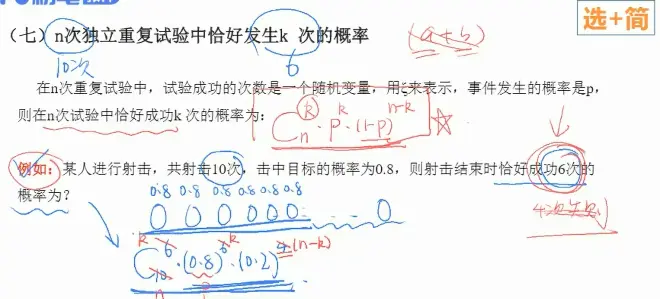 选+简
（七）n次独立重复试验中恰好发生k 次的概率
(a+b)
10次
6
在n次重复试验中，试验成功的次数是一个随机变量，用ξ来表示，事件发生的概率是p，
则在n次试验中恰好成功k 次的概率为：
C_n^k · p^k · (1-p)^{n-k}
例如：某人进行射击，共射击10次，击中目标的概率为0.8，则射击结束时恰好成功6次的
概率为？
0.8 0.8 0.8 0.8 0.8 0.8
0 0 0 0 0 0 ... 0
4次失败
C_{10}^6 · (0.8)^6 · (0.2)^4 (n-k)
k
k
n